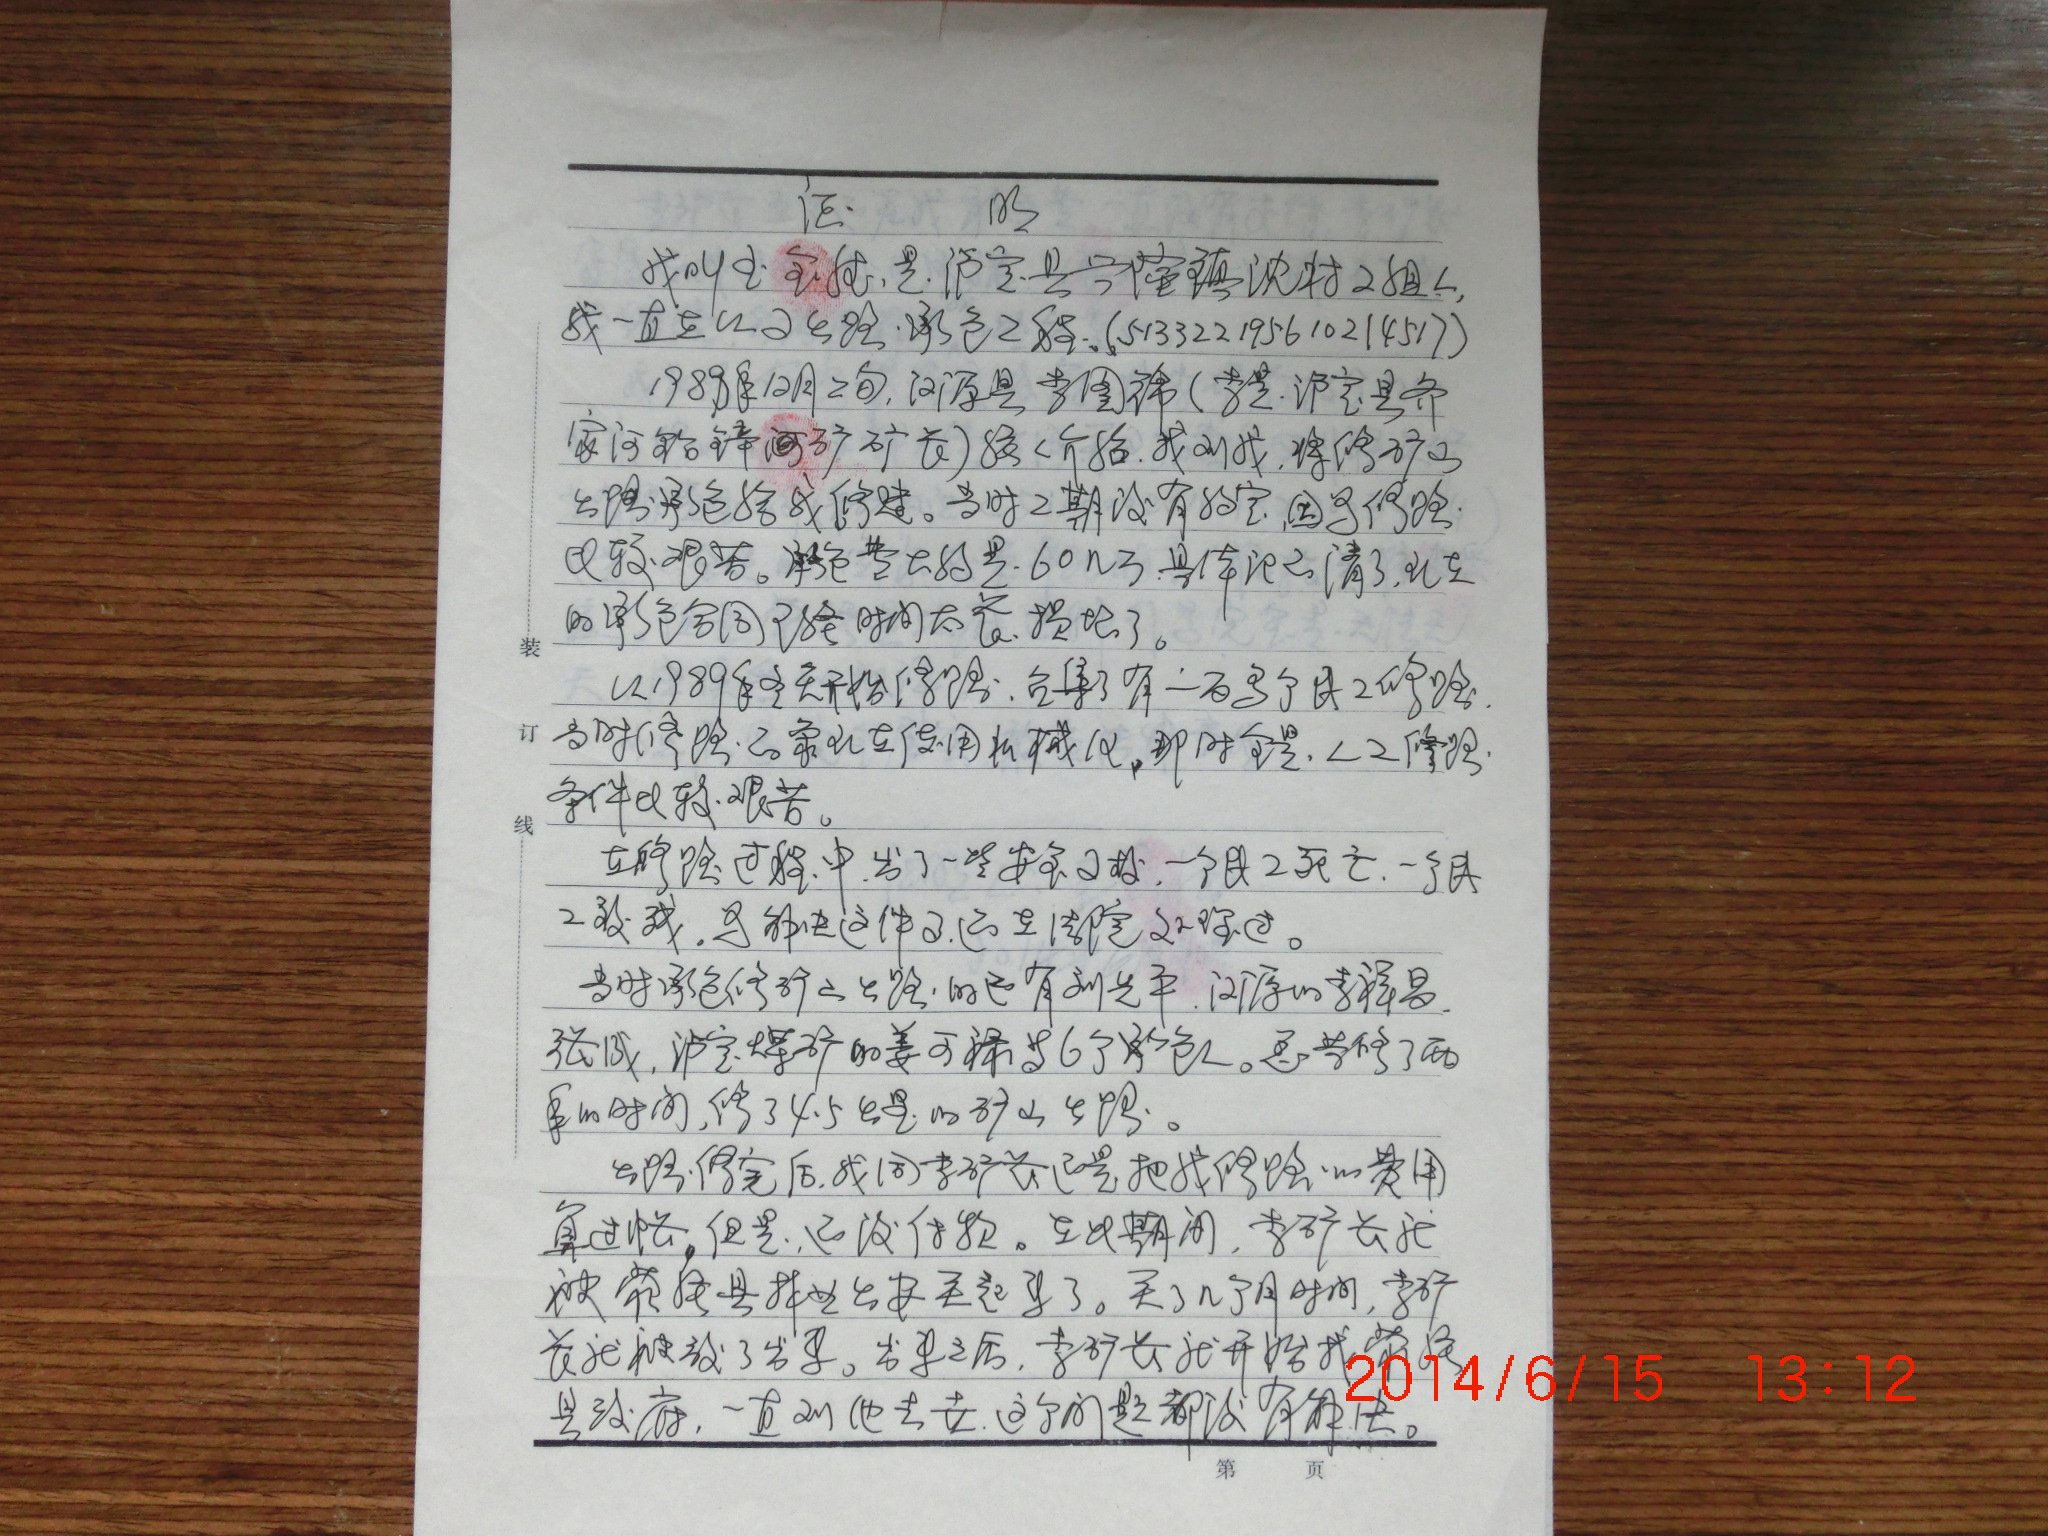 证 明
我叫王全德,是泸定县兴隆镇沈村2组人,
我一直在从事公路承包工程。(513322195610214517)
1989年12月上旬,汉源县李国祥(李是泸定县乔
家河铅锌矿矿长)经人介绍找到我,将修矿山
公路承包给我修建。当时工期没有约定,因为修路
比较艰苦。承包费大约是60几万,具体记不清了,现在
的承包合同已经时间太长,损坏了。
从1989年冬天开始修路,召集了有一百多个民工修路,
当时修路不象现在使用机械化,那时全是人工修路,
条件比较艰苦。
在修路过程中,出了一些安全事故,一个民工死亡,一个民
工致残。为解决这件事,还在法院处理过。
当时承包修矿山公路的还有刘先平,汉源的李祥昌,
张成,泸定煤矿的姜可禄等6个承包人。总共修了两
年的时间,修了4.5公里的矿山公路。
公路修完后,我同李矿长还是把我修路的费用
算过帐,但是,还没付款。在此期间,李矿长就
被荥经县林业公安关起来了。关了几个月时间,李矿
长就被放了出来。出来之后,李矿长就开始找荥经
县政府,一直到他去世,这个问题都没有解决。
装
订
线
第 页
2014/6/15 13:12